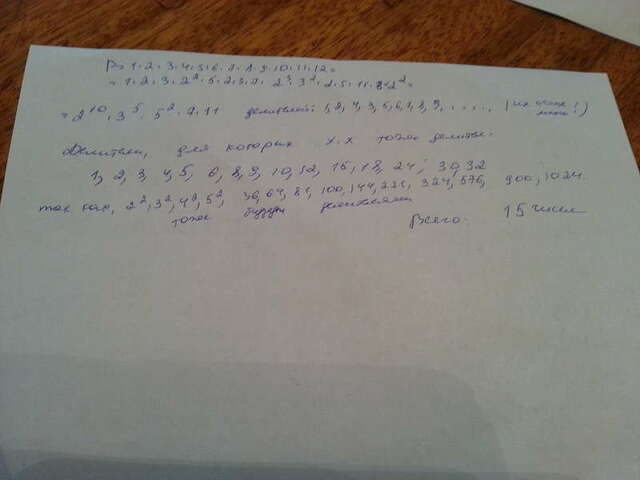 P = 1·2·3·4·5·6·7·8·9·10·11·12 =
= 1·2·3·2²·5·2·3·7·2³·3²·2·5·11·3·2² =
= 2¹⁰·3⁵·5²·7·11 делителей: 1, 2, 4, 3, 5, 6, 7, 8, 9, ..... (их очень много!)
Делители, для которых x·x тоже делитель:
1, 2, 3, 4, 5, 6, 8, 9, 10, 12, 15, 18, 24, 30, 32
так как, 2², 3², 4², 5², 36, 64, 81, 100, 144, 225, 324, 576, 900, 1024.
тоже будут делителями
Всего: 15 чисел